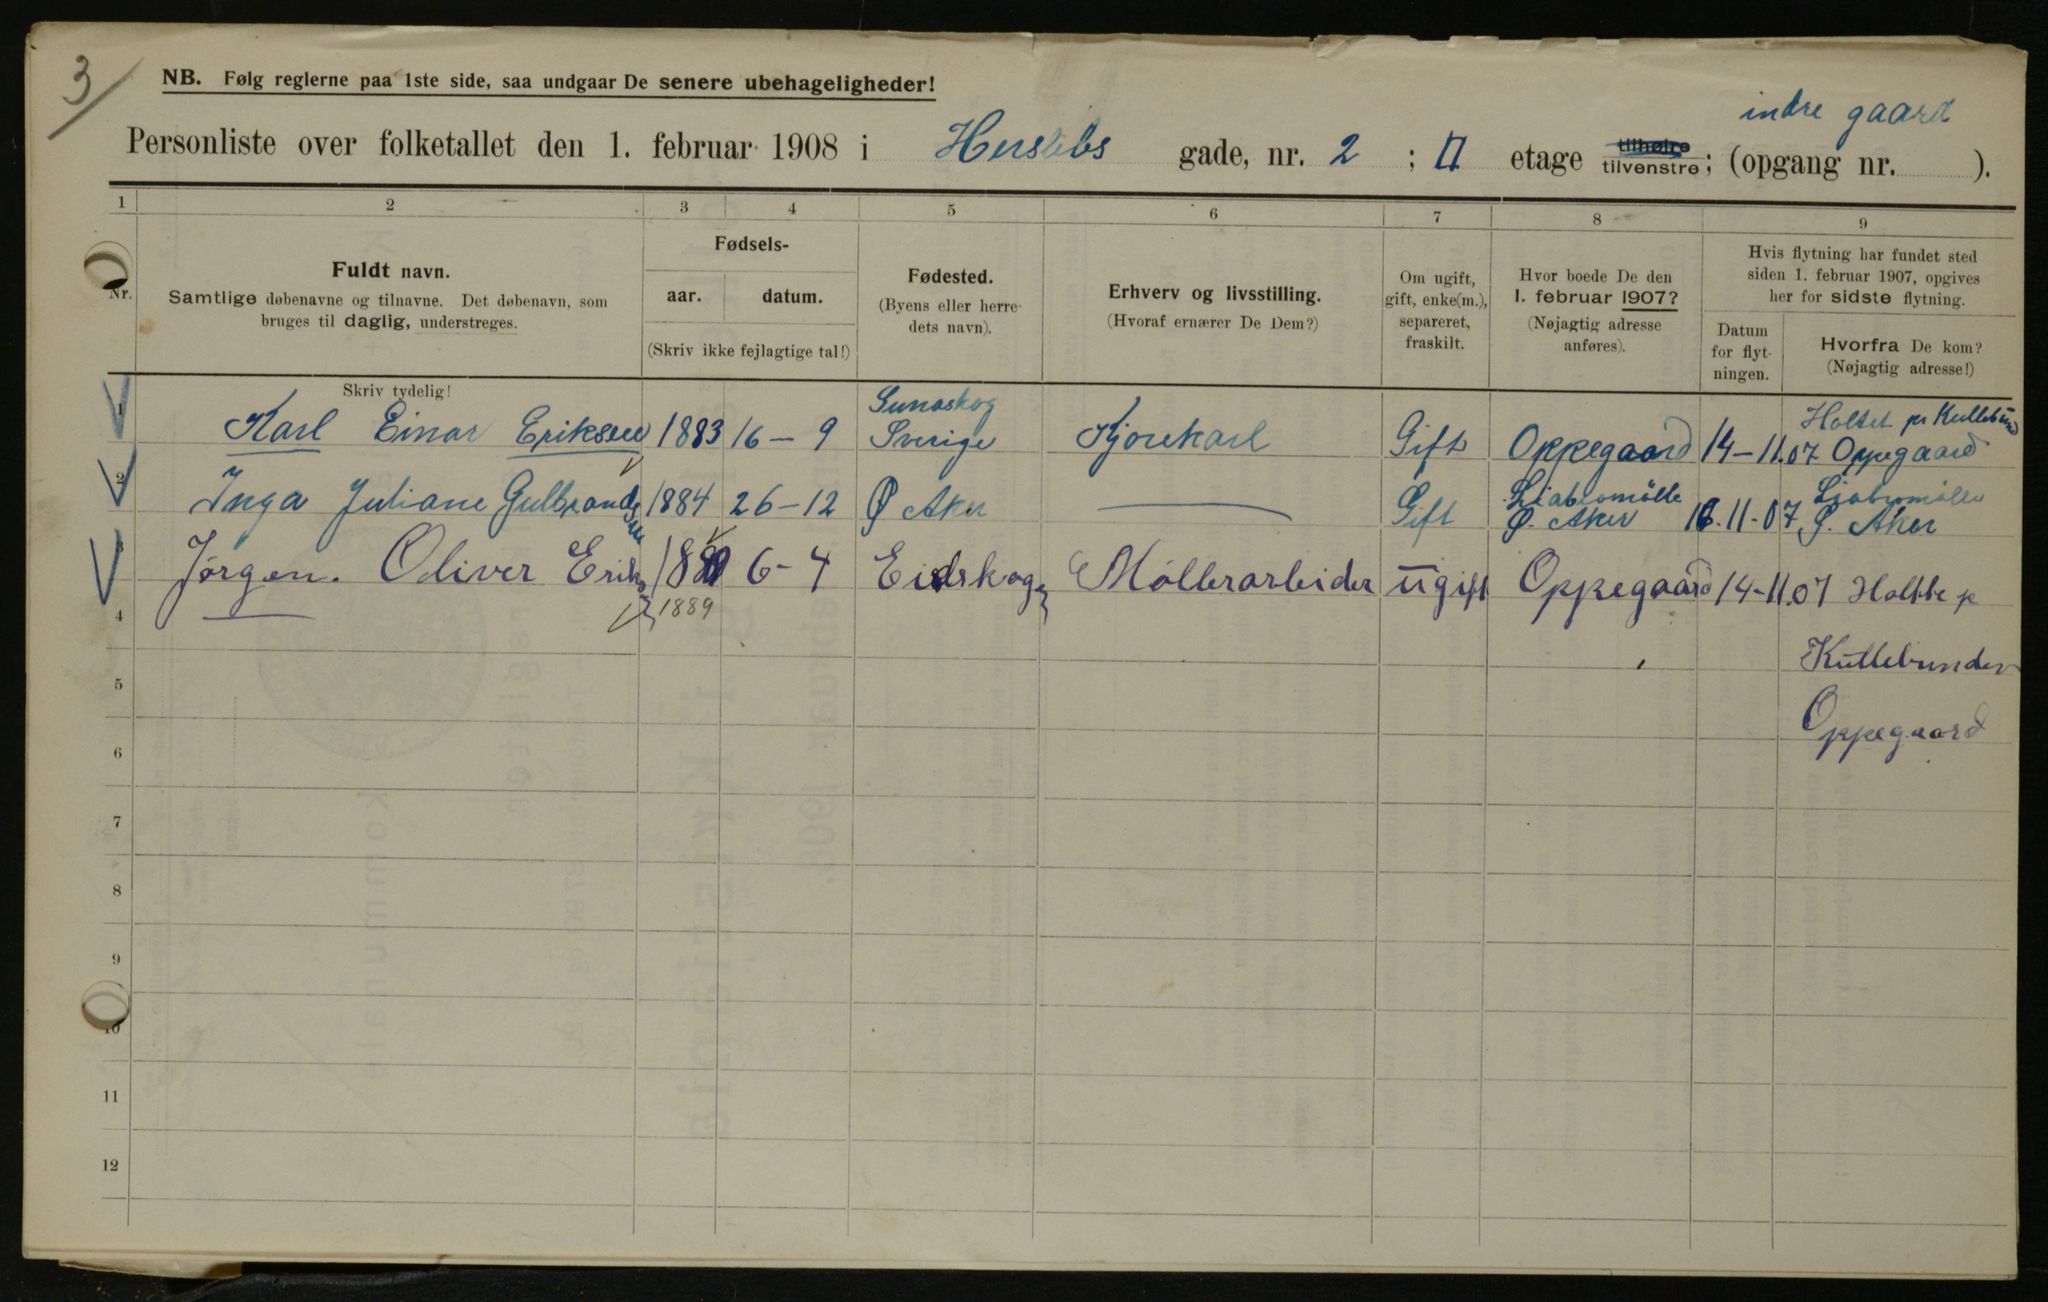 3/
NB. Følg reglerne paa 1ste side, saa undgaar De senere ubehageligheder!
indre gaard
Personliste over folketallet den 1. februar 1908 i Herslebs gade, nr. 2 ; II etage tilhøire tilvenstre; (opgang nr. ).
1 2 3 4 5 6 7 8 9
Nr.
Fuldt navn.
Samtlige døbenavne og tilnavne. Det døbenavn, som
bruges til daglig, understreges.
Fødsels-
aar. datum.
(Skriv ikke fejlagtige tal!)
Fødested.
(Byens eller herre-
dets navn).
Erhverv og livsstilling.
(Hvoraf ernærer De Dem?)
Om ugift,
gift, enke(m.),
separeret,
fraskilt.
Hvor boede De den
1. februar 1907?
(Nøjagtig adresse
anføres).
Hvis flytning har fundet sted
siden 1. februar 1907, opgives
her for sidste flytning.
Datum
for flyt-
ningen.
Hvorfra De kom?
(Nøjagtig adresse!)
Skriv tydelig!
Sunaskog Holtet pr Kullebund
1 Karl Einar Eriksen 1883 16-9 Sverige Kjørekarl Gift Oppegaard 14-11.07 Oppegaard
Liabromölle Liabromölle
2 Inga Juliane Gulbrandsen 1884 26-12 Ø Aker Gift Ø. Aker 16-11-07 Ø. Aker
3 Jørgen. Oliver Eriksen 6-4 Eidskogen Møllerarbeider ugift Oppegaard 14-11.07 Holtte p
4 1889
Kullebunden
5
Oppegaard
6
7
8
9
10
11
12